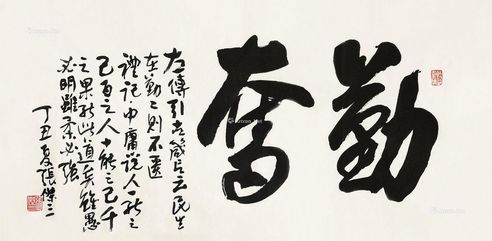 勤奮
左傳引古箴言云民生
在勤〻則不匱
禮記中庸說人一能之
己百之人十能之己千
之果能此道矣雖愚
必明雖柔必強
丁丑夏張傑三